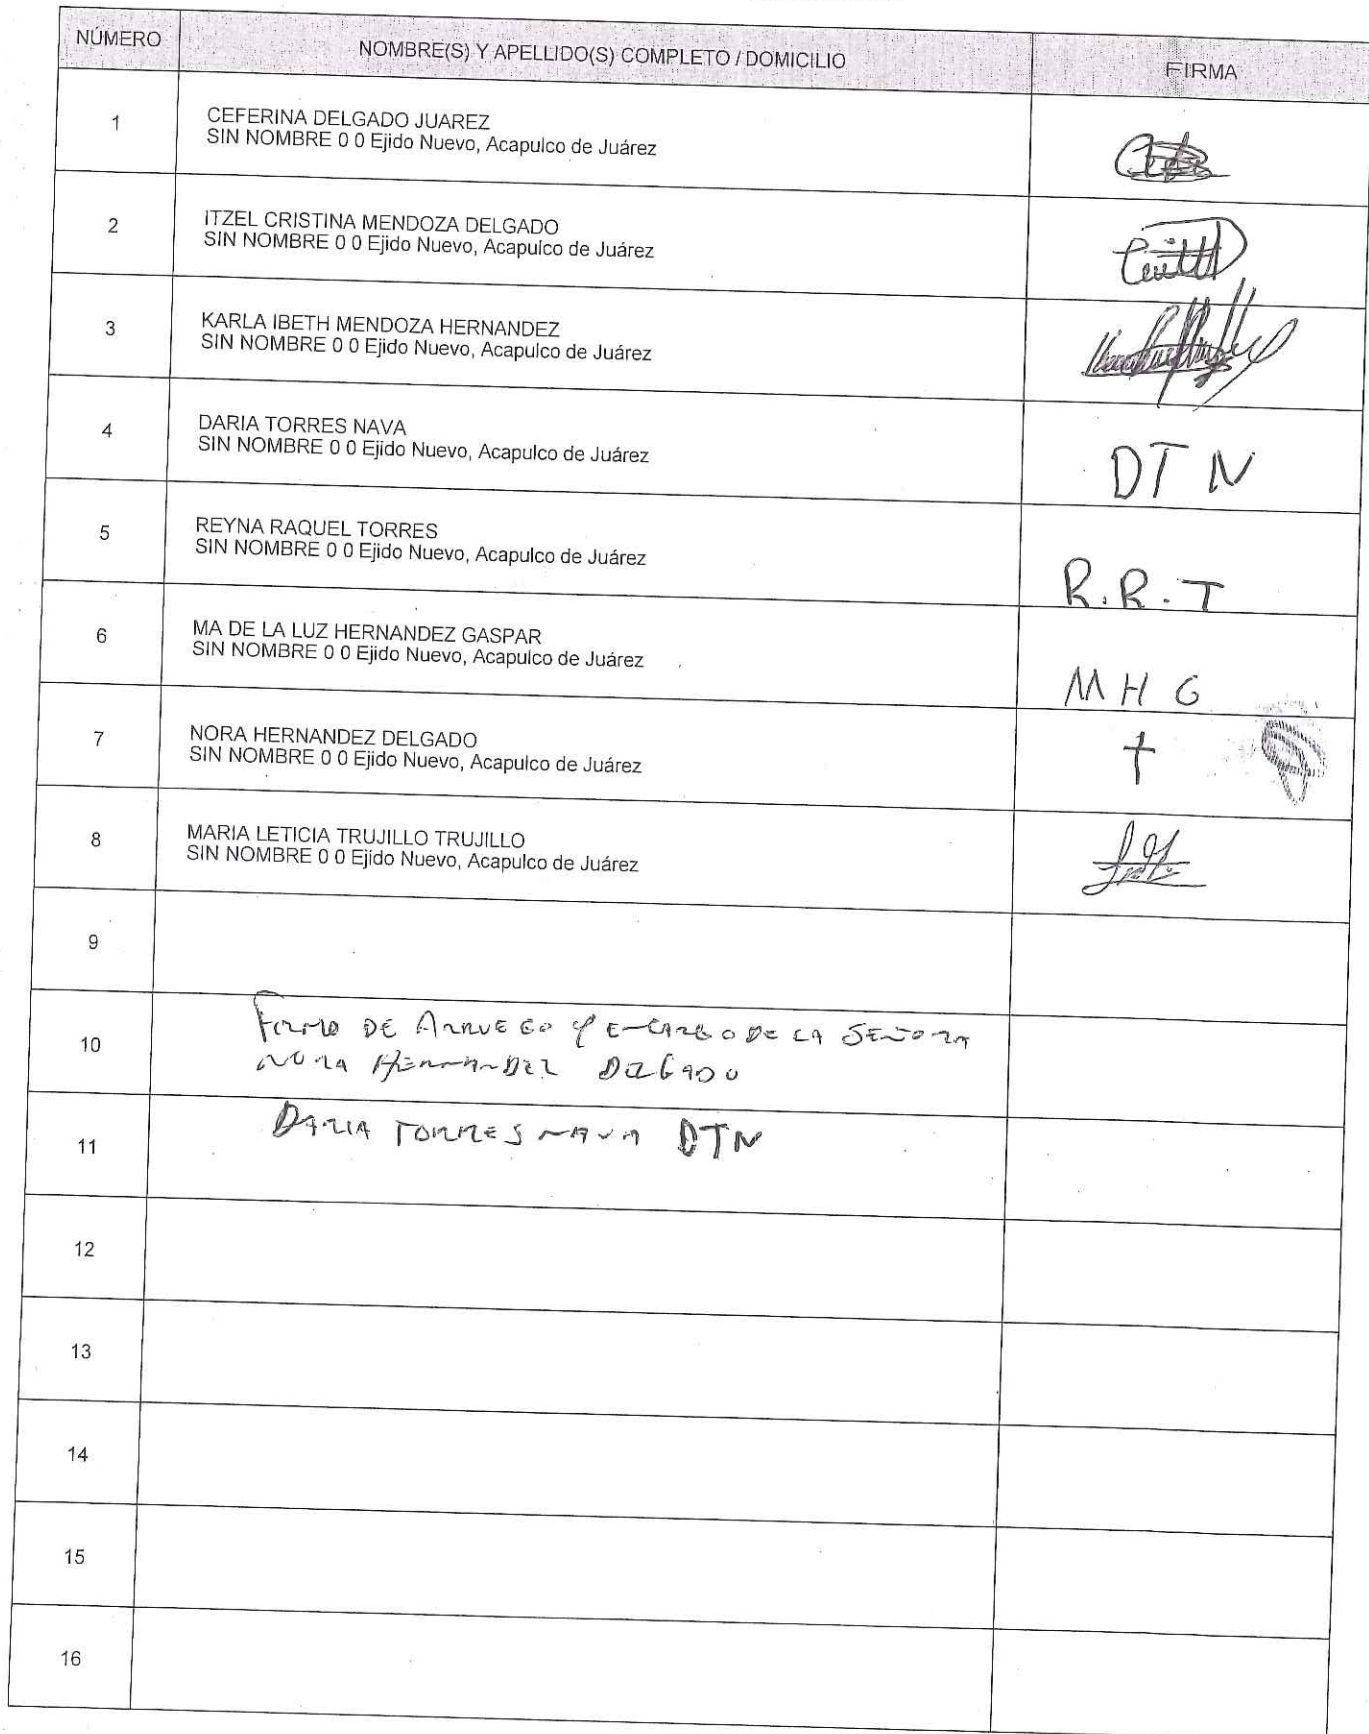 NÚMERO NOMBRE(S) Y APELLIDO(S) COMPLETO / DOMICILIO FIRMA
1 CEFERINA DELGADO JUAREZ
SIN NOMBRE 0 0 Ejido Nuevo, Acapulco de Juárez
2 ITZEL CRISTINA MENDOZA DELGADO
SIN NOMBRE 0 0 Ejido Nuevo, Acapulco de Juárez
3 KARLA IBETH MENDOZA HERNANDEZ
SIN NOMBRE 0 0 Ejido Nuevo, Acapulco de Juárez
4 DARIA TORRES NAVA
SIN NOMBRE 0 0 Ejido Nuevo, Acapulco de Juárez
DTN
5 REYNA RAQUEL TORRES
SIN NOMBRE 0 0 Ejido Nuevo, Acapulco de Juárez
R.R.T
6 MA DE LA LUZ HERNANDEZ GASPAR
SIN NOMBRE 0 0 Ejido Nuevo, Acapulco de Juárez
MHG
7 NORA HERNANDEZ DELGADO
SIN NOMBRE 0 0 Ejido Nuevo, Acapulco de Juárez
8 MARIA LETICIA TRUJILLO TRUJILLO
SIN NOMBRE 0 0 Ejido Nuevo, Acapulco de Juárez
9
10 DE Y ENCARGO DE LA SEÑORA
NORA HERNANDEZ DELGADO
11 DARIA TORRES NAVA DTN
12
13
14
15
16